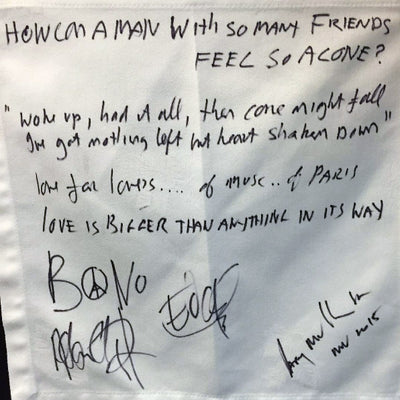 HOW CAN A MAN WITH SO MANY FRIENDS
FEEL SO ALONE?
"woke up, had it all, then come night fall
I've got nothing left but heart shaken DOWN"
love far lovers.... of music.. of PARIS
LOVE IS BIGGER THAN ANYTHING IN ITS WAY
BONO
EDGE
Nov 2015